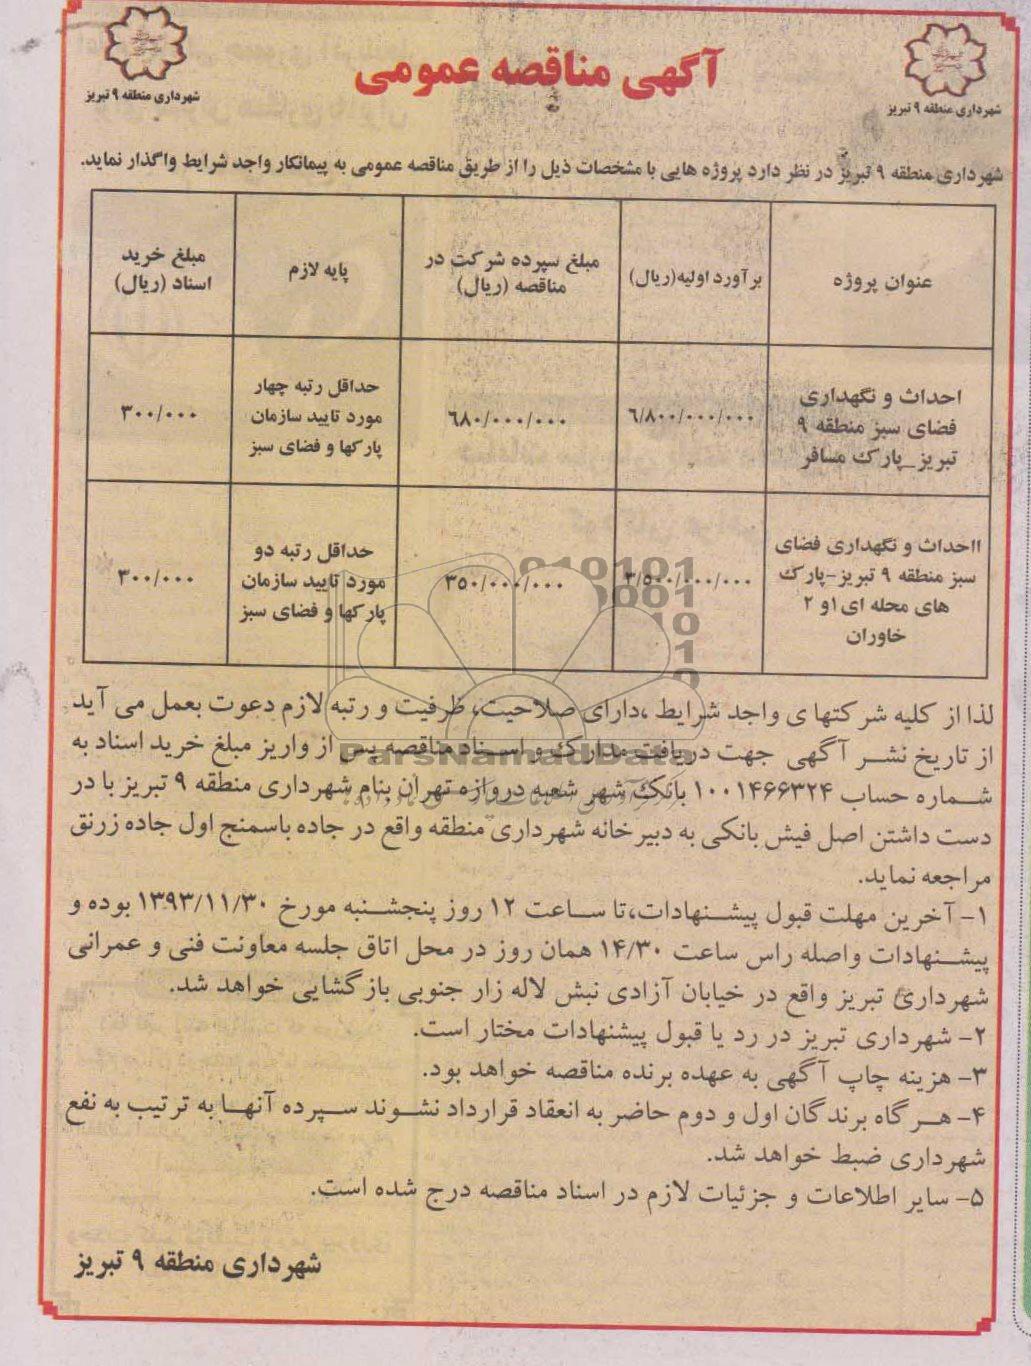 آگهی مناقصه عمومی
شهرداری منطقه ۹ تبریز
شهرداری منطقه ۹ تبریز
شهرداری منطقه ۹ تبریز در نظر دارد پروژه هایی با مشخصات ذیل را از طریق مناقصه عمومی به پیمانکار واجد شرایط واگذار نماید.
عنوان پروژه
برآورد اولیه(ریال)
مبلغ سپرده شرکت در
مناقصه (ریال)
پایه لازم
مبلغ خرید
اسناد (ریال)
احداث و نگهداری
فضای سبز منطقه ۹
تبریز_پارک مسافر
۶/۸۰۰/۰۰۰/۰۰۰
۶۸۰/۰۰۰/۰۰۰
حداقل رتبه چهار
مورد تایید سازمان
پارکها و فضای سبز
۳۰۰/۰۰۰
ااحداث و نگهداری فضای
سبز منطقه ۹ تبریز-پارک
های محله ای ۱و ۲
خاوران
۳/۵۰۰/۰۰۰/۰۰۰
۳۵۰/۰۰۰/۰۰۰
حداقل رتبه دو
مورد تایید سازمان
پارکها و فضای سبز
۳۰۰/۰۰۰
لذا از کلیه شرکتها ی واجد شرایط ،دارای صلاحیت، ظرفیت و رتبه لازم دعوت بعمل می آید
از تاریخ نشر آگهی جهت دریافت مدارک و اسناد مناقصه پس از واریز مبلغ خرید اسناد به
شماره حساب ۱۰۰۱۴۶۶۳۲۴ بانک شهر شعبه دروازه تهران بنام شهرداری منطقه ۹ تبریز با در
دست داشتن اصل فیش بانکی به دبیرخانه شهرداری منطقه واقع در جاده باسمنج اول جاده زرنق
مراجعه نماید.
۱- آخرین مهلت قبول پیشنهادات،تا ساعت ۱۲ روز پنجشنبه مورخ ۱۳۹۳/۱۱/۳۰ بوده و
پیشنهادات واصله راس ساعت ۱۴/۳۰ همان روز در محل اتاق جلسه معاونت فنی و عمرانی
شهرداری تبریز واقع در خیابان آزادی نبش لاله زار جنوبی بازگشایی خواهد شد.
۲- شهرداری تبریز در رد یا قبول پیشنهادات مختار است.
۳- هزینه چاپ آگهی به عهده برنده مناقصه خواهد بود.
۴- هرگاه برندگان اول و دوم حاضر به انعقاد قرارداد نشوند سپرده آنها به ترتیب به نفع
شهرداری ضبط خواهد شد.
۵- سایر اطلاعات و جزئیات لازم در اسناد مناقصه درج شده است.
شهرداری منطقه ۹ تبریز
ParsNamadData